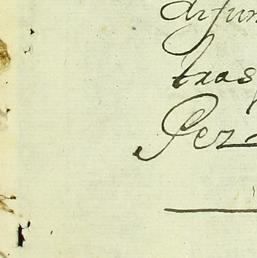 difun
tras
Per